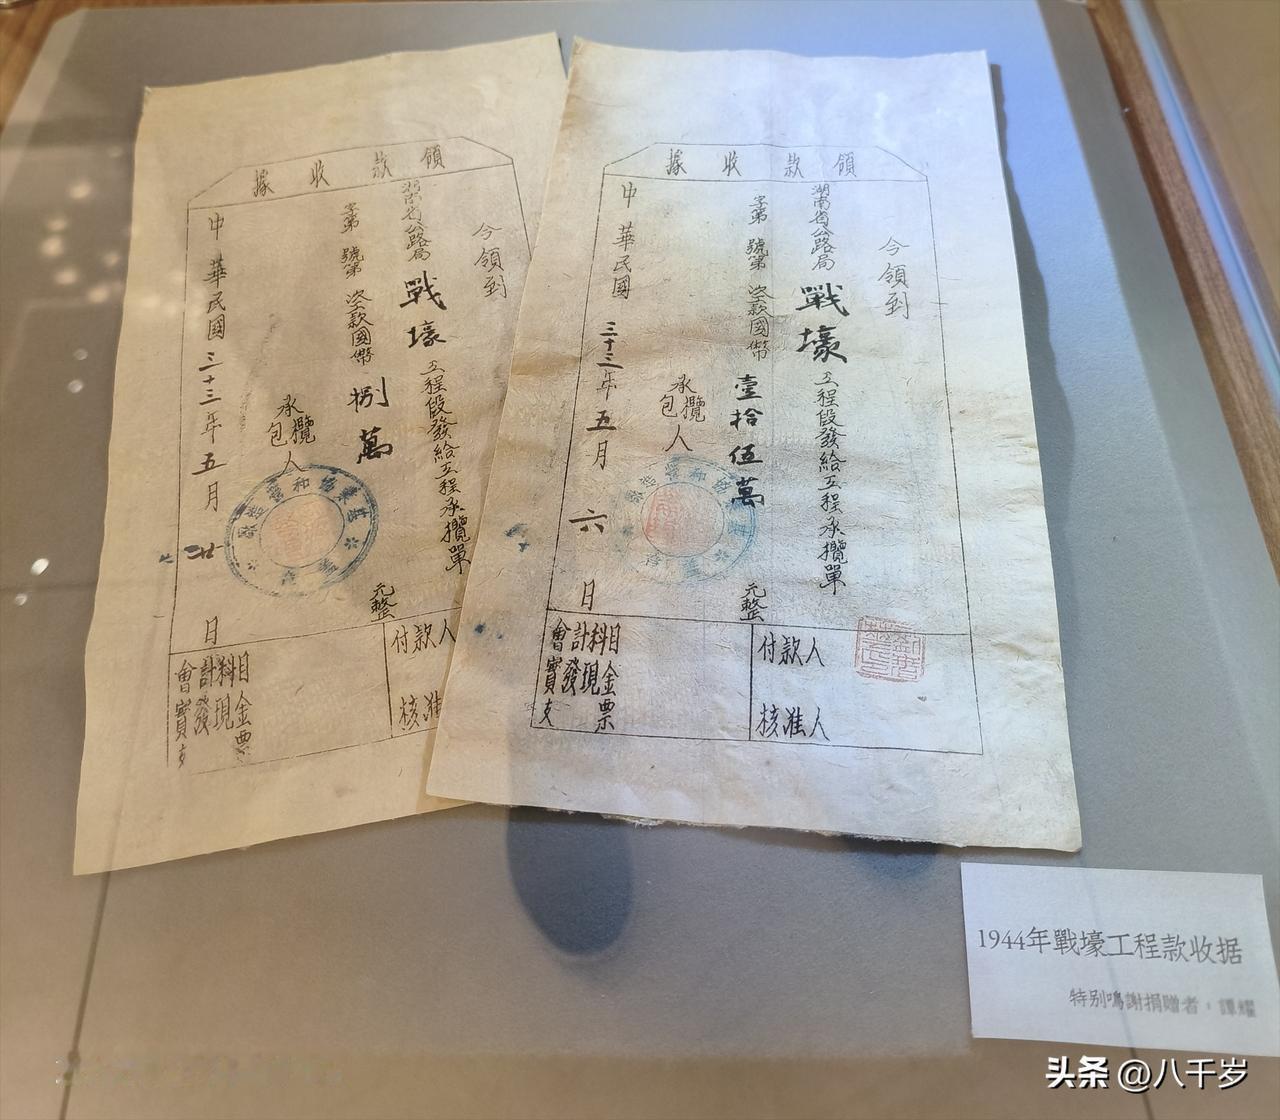 領款收據
今領到
湖南省公路局戰壕工程段發給工程承攬單
字第 號第 次款國幣壹拾伍萬 元整
承攬包人
中華民國三十三年五月六日
付款人
核准人
會計科目
實發現金
支票
領款收據
今領到
湖南省公路局戰壕工程段發給工程承攬單
字第 號第 次款國幣捌萬 元整
承攬包人
中華民國三十三年五月廿日
付款人
核准
會計科目
實發現金
支票
1944年戰壕工程款收据
特别鳴謝捐贈者：譚耀
头条 @八千岁